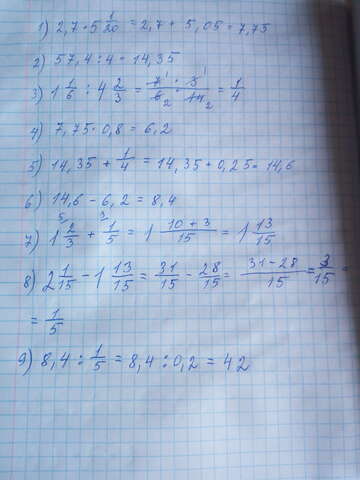 1) 2,7 + 5 1/20 = 2,7 + 5,05 = 7,75
2) 57,4 : 4 = 14,35
3) 1 1/6 : 4 2/3 = 7¹/6₂ · 3¹/14₂ = 1/4
4) 7,75 · 0,8 = 6,2
5) 14,35 + 1/4 = 14,35 + 0,25 = 14,6
6) 14,6 - 6,2 = 8,4
7) 1 ⁵⁾2/3 + ³⁾1/5 = 1 10+3/15 = 1 13/15
8) 2 1/15 - 1 13/15 = 31/15 - 28/15 = 31-28/15 = 3/15 =
= 1/5
9) 8,4 : 1/5 = 8,4 : 0,2 = 42